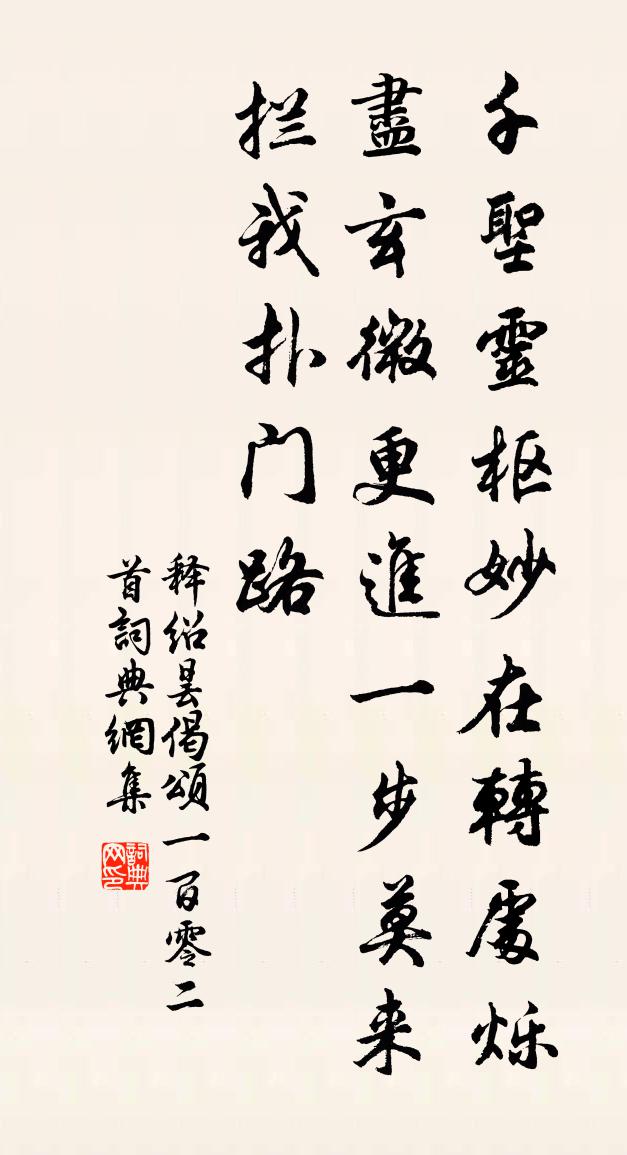 千聖靈枢妙在轉處烁
盡玄微更進一步莫来
拦我扑门路
释绍昙偈頌一百零二
首詞典網集
詞典网印